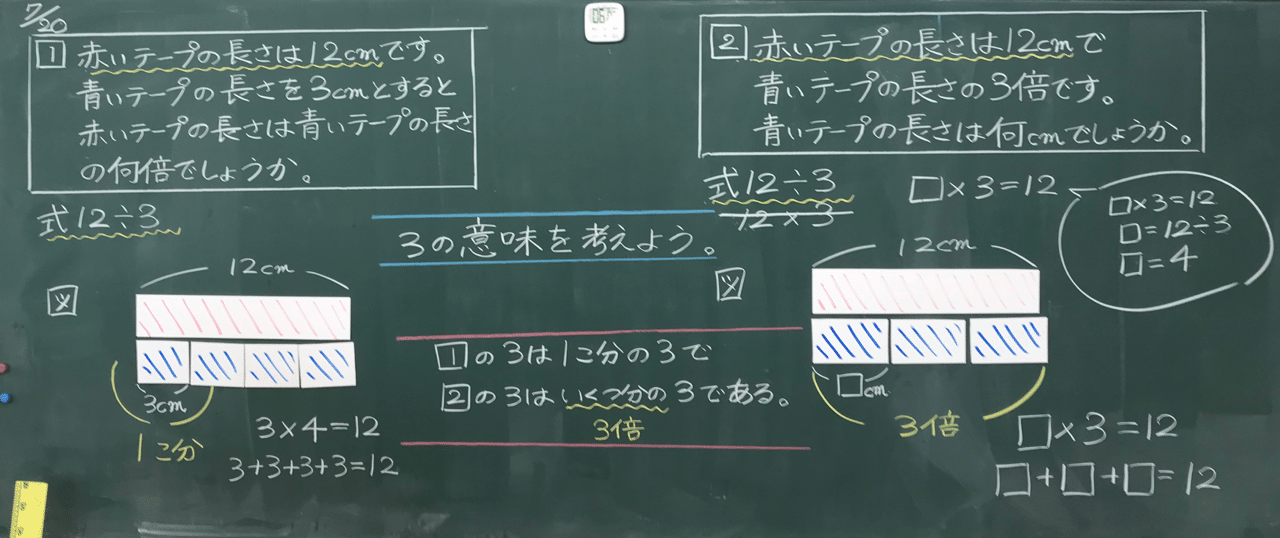 7/20
1 赤いテープの長さは12cmです。
青いテープの長さを3cmとすると
赤いテープの長さは青いテープの長さ
の何倍でしょうか。
式12÷3
図
12cm
3cm
1こ分
3×4=12
3+3+3+3=12
3の意味を考えよう。
1の3は1こ分の3で
2の3はいくつ分の3である。
3倍
2 赤いテープの長さは12cmで
青いテープの長さの3倍です。
青いテープの長さは何cmでしょうか。
式12÷3
12×3
□×3=12
□×3=12
□=12÷3
□=4
図
12cm
□cm
3倍
□×3=12
□+□+□=12